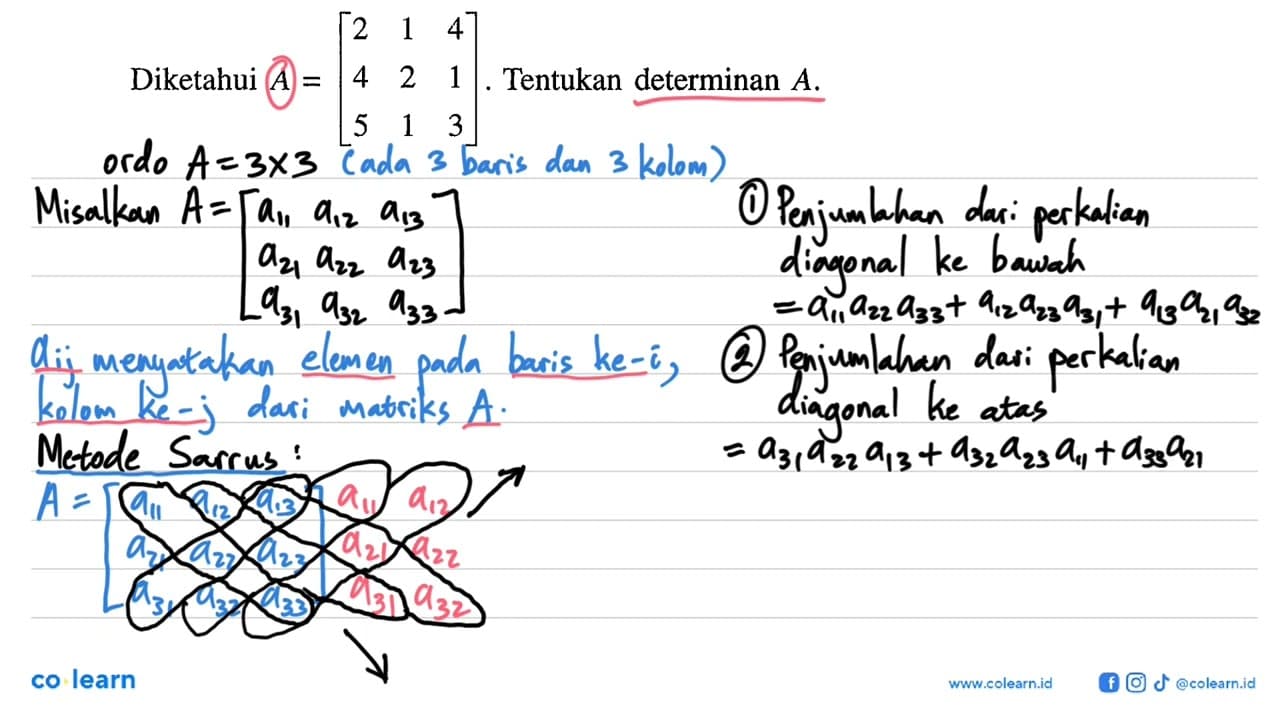 Diketahui A = [2 1 4
4 2 1
5 1 3]. Tentukan determinan A.
ordo A = 3×3 (ada 3 baris dan 3 kolom)
Misalkan A = [a₁₁ a₁₂ a₁₃
a₂₁ a₂₂ a₂₃
a₃₁ a₃₂ a₃₃]
aij menyatakan elemen pada baris ke-i,
kolom ke-j dari matriks A.
Metode Sarrus:
A = [a₁₁ a₁₂ a₁₃] a₁₁ a₁₂
a₂₁ a₂₂ a₂₃ a₂₁ a₂₂
a₃₁ a₃₂ a₃₃ a₃₁ a₃₂
① Penjumlahan dari perkalian
diagonal ke bawah
= a₁₁a₂₂a₃₃ + a₁₂a₂₃a₃₁ + a₁₃a₂₁a₃₂
② Penjumlahan dari perkalian
diagonal ke atas
= a₃₁a₂₂a₁₃ + a₃₂a₂₃a₁₁ + a₃₃a₂₁
co learn
www.colearn.id
@colearn.id